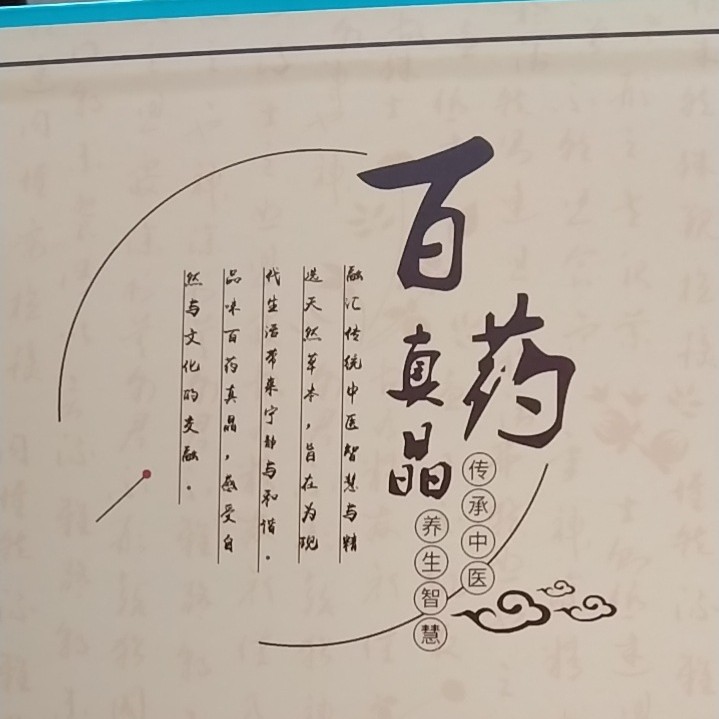 百药
真晶
传承中医
养生智慧
融汇传统中医智慧与精
选天然草本，旨在为现
代生活带来宁静与和谐。
品味百药真晶，感受自
然与文化的交融。